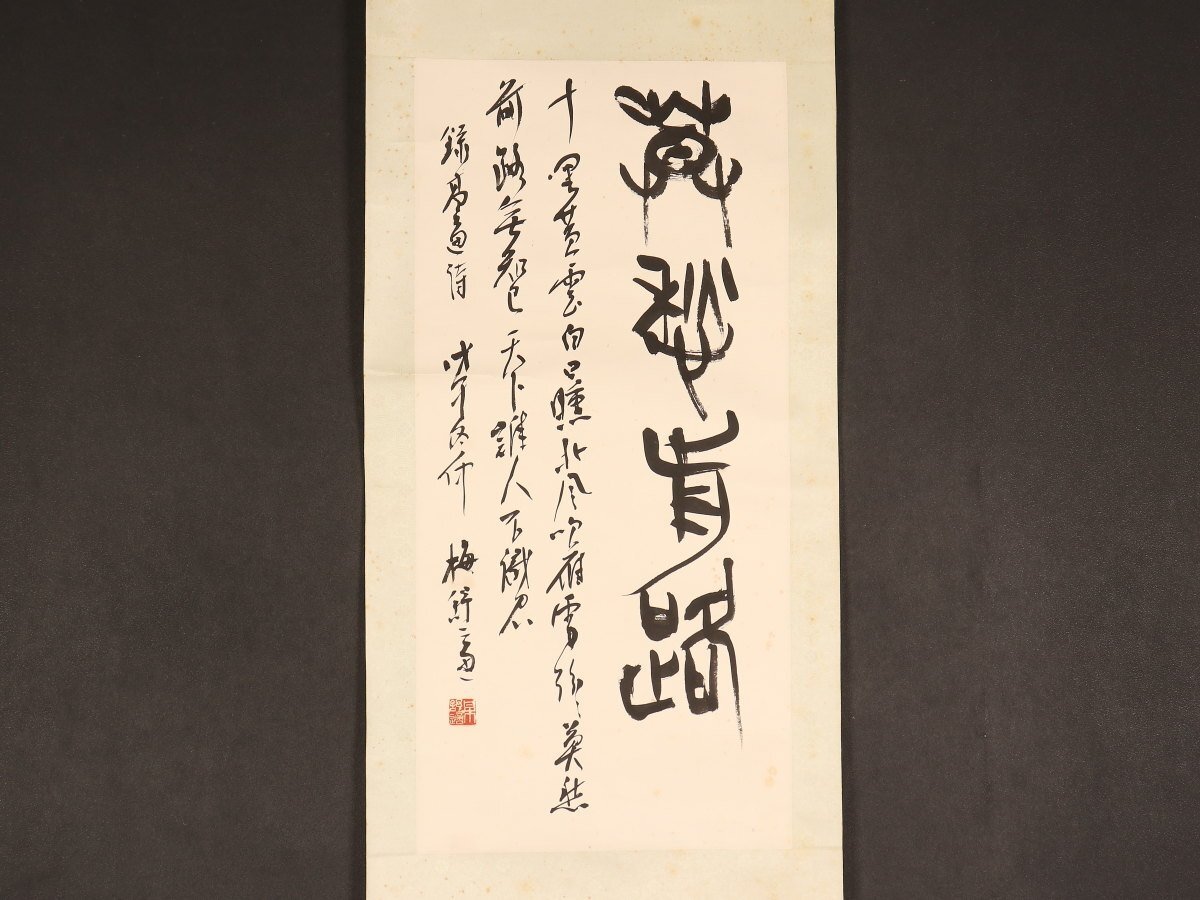 莫愁前路
十里黄雲白日曛北風吹雁雪紛々莫愁
前路無知己天下誰人不識君
録高適詩 戊午冬仲 梅舒適